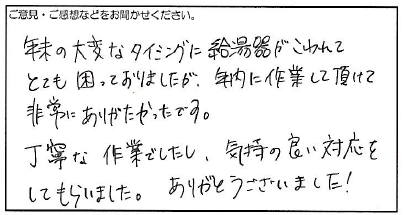 ご意見・ご感想などをお聞かせください。
年末の大変なタイミングに給湯器がこわれて
とても困っておりましたが、年内に作業して頂けて
非常にありがたかったです。
丁寧な作業でしたし、気持の良い対応を
してもらいました。ありがとうございました!